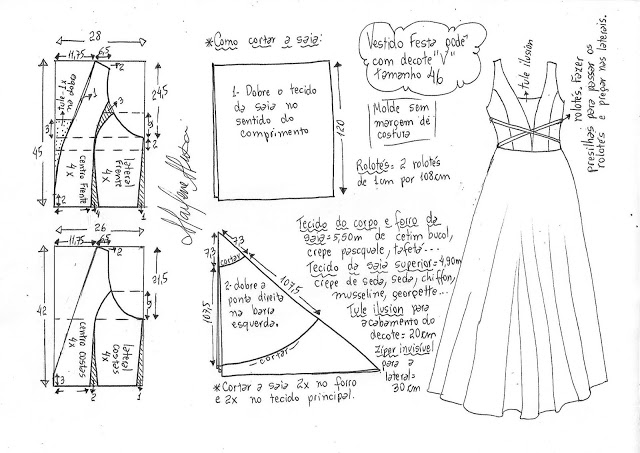 28
11,75
6,5
2
1
3
24,5
5
2
3
45
tule
dobra
1x
centro frente
4x
lateral
frente
4x
2
4
1
26
11,75
6,5
2
21,5
5
42
centro costas
4x
lateral
costas
4x
3
2
1
Marlene Mukai
*Como cortar a saia:
1- Dobre o tecido
da saia no
sentido do
comprimento
120
7,3
7,3
cortar
107,5
107,5
2-dobre a
ponta direita
na barra
esquerda.
cortar
*Cortar a saia 2x no forro
e 2x no tecido principal.
Vestido Festa podê
com decote "V"
tamanho 46
Molde sem
margem de
costura
Rolotês= 2 rolotês
de 1cm por 108cm
Tecido do corpo e forro da
saia=5,50m de cetim bucol,
crepe pascquale, tafetá...
Tecido da saia superior=4,90m
crepe de seda, seda, chiffon,
musseline, georgette...
Tule ilusion para
acabamento do
decote=20cm
Ziper invisível
para a
lateral=
30cm
tule ilusion
rolotés. Fazer
presilhas para passar os
rolotés e pregar nas laterais.